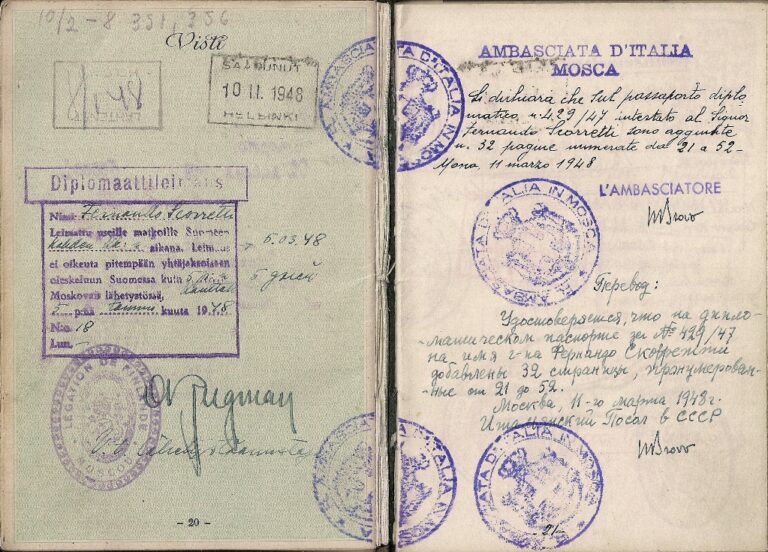 10/2-8 351, 356
Visti
8/1 48
SAAPUNUT
10 II. 1948
HELSINKI
Diplomaattileimaus
Nimi Fernando Scorretti
Leimattu useille matkoille Suomeen
kahden kk:n aikana. Leimaus
ei oikeuta pitempään yhtäjaksoiseen
oleskeluun Suomessa kuin
Moskovan lähetystössä,
5 p:nä tammi kuuta 1948
N:o 18
Lun. -
5.03.48
5 дней
LEGATION DE FINLANDE
MOSCOU
- 20 -
R. AMBASCIATA D'ITALIA IN MOSCA
AMBASCIATA D'ITALIA
MOSCA
Si dichiara che sul passaporto diplo
matico n. 429/47 intestato al Signor
Fernando Scorretti sono aggiunte
n. 32 pagine numerate dal 21 a 52-
Mosca, 11 marzo 1948
L'AMBASCIATORE
MBrosio
R. AMBASCIATA D'ITALIA IN MOSCA
Перевод:
Удостоверяется, что на дипло-
матическом паспорте за № 429/47
на имя г-на Фернандо Скорретти
добавлены 32 страницы, пронумерован-
ные от 21 до 52.
Москва, 11-го марта 1948 г.
Итальянский Посол в СССР
MBrosio
R. AMBASCIATA D'ITALIA IN MOSCA
R. AMBASCIATA D'ITALIA IN MOSCA
- 21 -